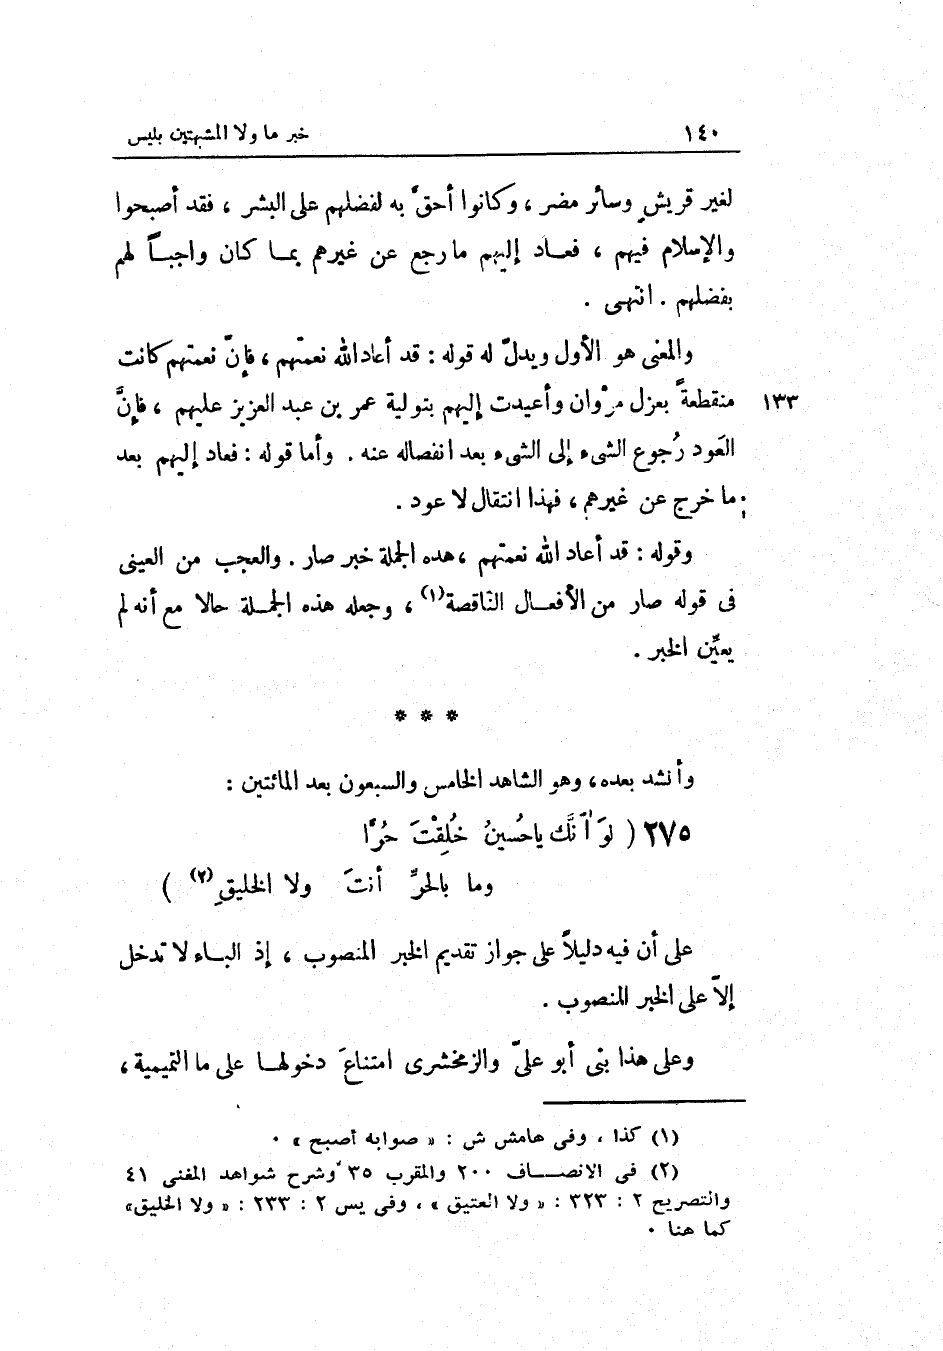 ١٤٠ خبر ما ولا المشبهتين بليس
لغير قريشٍ وسائر مضر ، وكانوا أحقَّ به لفضلهم على البشر ، فقد أصبحوا
والإسلام فيهم ، فعـاد إليهم ما رجع عن غيرهم بمـا كان واجبـاً لهم
بفضلهم . انتهى .
والمعنى هو الأول ويدلّ له قوله : قد أعاد الله نعمتهم ، فإنّ نعمتهم كانت
منقطعةً بعزل مرْوان وأعيدت إليهم بتولية عمر بن عبد العزيز عليهم ، فإنَّ ١٣٣
العَود رُجوع الشىء إلى الشىء بعد انفصاله عنه . وأما قوله : فعاد إليهم بعد
ما خرج عن غيرهم ، فهذا انتقال لا عود .
وقوله : قد أعاد الله نعمتهم ، هده الجملة خبر صار . والعجب من العينى
فى قوله صار من الأفعـال النَاقصة(١) ، وجعله هذه الجمـلة حالا مع أنه لم
يعيِّن الخبر .
* * *
وأنشد بعده ، وهو الشاهد الخامس والسبعون بعد المائتين :
٢٧٥ ( لوَ اْنَّك ياحُسينُ خُلِقْتَ حُرًّا
وما بالحرِّ أنتَ ولا الخليقِ(٢) )
على أن فيه دليلاً على جواز تقديم الخبر المنصوب ، إذ البـاء لا تدخل
إلاّ على الخبر المنصوب .
وعلى هذا بنى أبو علىّ والزمخشرى امتناعَ دخولهـا على ما التميمية ،
(١) كذا ، وفى هامش ش : « صوابه أصبح » .
(٢) فى الانصـــاف ٢٠٠ والمقرب ٣٥ وشرح شواهد المغنى ٤١
والتصريح ٢ : ٣٢٣ : « ولا العتيق » ، وفى يس ٢ : ٢٣٣ : « ولا الخليق»
كما هنا .